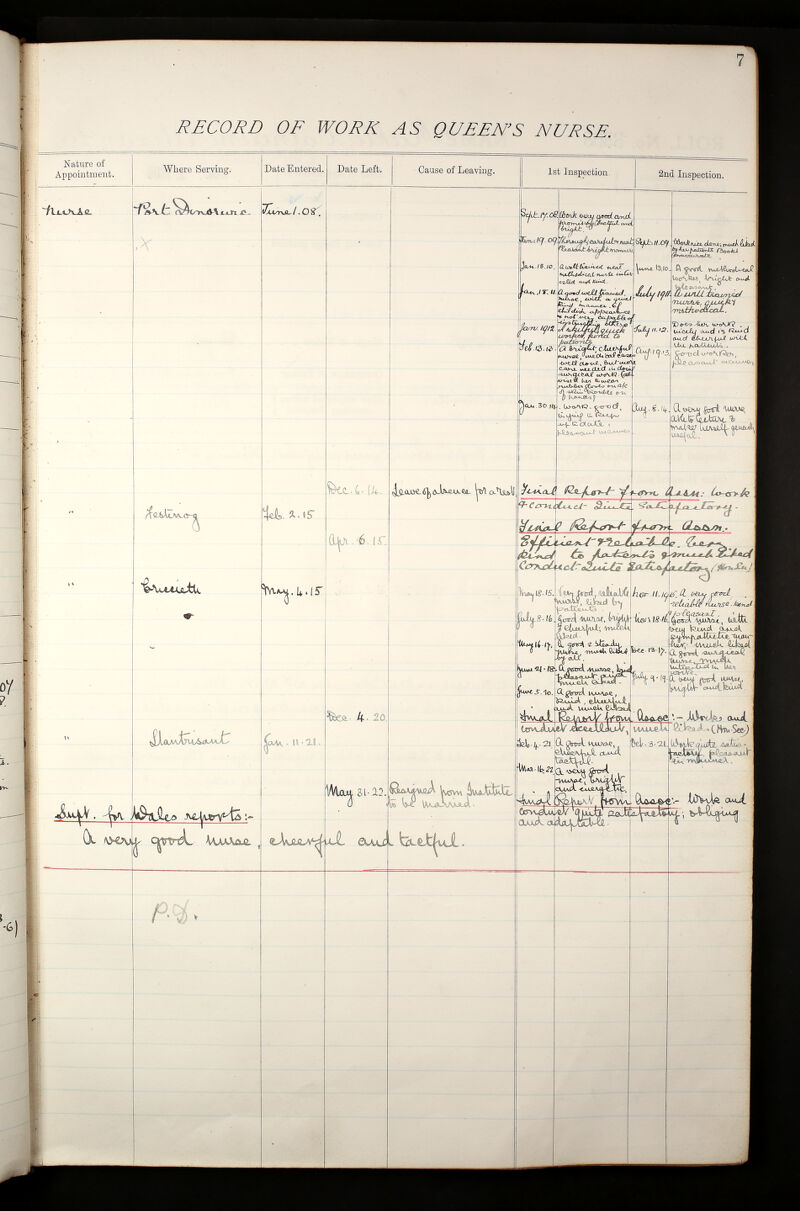 7
RECORD OF WORK AS QUEEN'S NURSE.
Nature of Appointment.
Where Serving.
Date Entered.
Date Left.
Cause of Leaving.
1st Inspection.
2nd Inspection.
Nurse
Port Dinorwic.
June 1. 08.
Sept. 17. 08
Work very good and
promising, tactful and
bright.
Thorough, careful & neat
Pleasant bright manner
Sept. 11. 09
Work nice done, much liked
by her patients. Books
Jan. 18. 10.
A well trained neat
methodical nurse
and kind.
June 13. 10.
A good methodical
worker, bright and
pleasant.
Jan. 18. 11
A good well trained
nurse, with a quiet
kind manner of
childish appearance
& not very capable of
instructing others
July 1911.
A well trained
nurse, quick &
methodical.
Jan 1912
A skilful quick
worker, good to
patients
July 11. 12.
Does her work
nicely and is kind
and cheerful with
the patients.
Feb. 13. 13
A bright, cheerful
nurse, medical cases
well done, but more
care needed in doing
surgical work.
her to wear
rubber gloves on a/c
of skin trouble on
hands
Aug 1913.
Good worker,
pleasant manner
Jan. 30 14.
Work good,
up to date,
pleasant manner
Aug. 8. 14.
A very good nurse
able to lecture &
make herself generally
useful.
Dec. 6. 14.
Leave of absence for a rest
Final Report from Assn: Work
& Conduct Quite Satisfactory.
"
Festiniog
Feb. 2. 15
Apr. 6. 15
Final Report from Assn.
Efficient & reliable. Very
kind to patients & much liked
Conduct: Quite Satisfactory (Hon. Sec)
"
Criccieth
May. 4. 15
May 18. 15.
Very good, reliable
nurse, liked by
patients
Nov. 11. 15.
A very good
reliable nurse. Kind
& pleasant
July. 8. 16.
Good nurse, bright
& cheerful; much
liked
Nov 18. 16.
Good nurse, with
very kind and
sympathetic man-
ner, much liked
May 16. 17.
A good & steady
nurse, much liked
by all.
Dec. 13. 17.
A good surgical
nurse,
interested in her
work.
June 21. 18.
A good nurse, kind,
pleasant and
much liked.
July. 9. 19.
A very good nurse,
bright and kind
June 5. 20.
A good nurse,
kind, cheerful,
and much liked
Dec. 4. 20
Final Report from Assoc:- Works and
conduct excellent, much liked. (Hon Sec)
"
Llantrisant
Jan. 11. 21.
Feb. 4. 21
A good nurse,
cheerful and
tactful.
Oct. 3. 21.
Work quite satis-
factory, pleasant
in manner.
Mar. 16. 22.
A very good
nurse, bright
and energetic.
May 31. 22.
Resigned from Institute
to be married.
Final Report from Assoc:- Work and
Conduct quite satisfactory; obliging
and adaptable.
Supt. for Wales reports:-
A very good nurse, cheerful and tactful.
P.D.